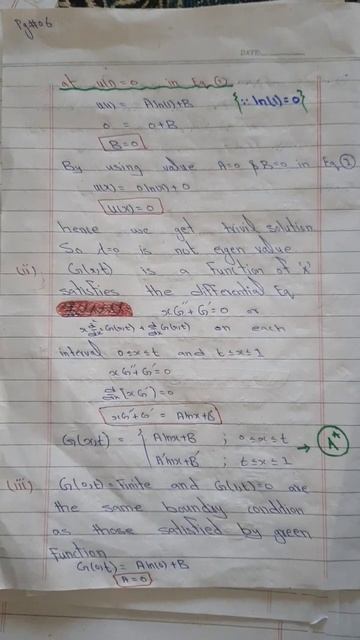 Pg#06
DATE:
at u(1)=0 in Eq ①
u(1) = Aln(1)+B {∵ ln(1)=0}
0 = 0+B
B=0
By using value A=0 & B=0 in Eq ①
u(x) = 0ln(x)+0
u(x)=0
hence we get trivial solution
So λ=0 is not eigen value.
(ii) G(x,t) is a Function of 'x'
satisfies the differential Eq.
xG''+G'=0 or
x d²/dx² G(x,t) + d/dx G(x,t) on each
interval 0≤x≤t and t≤x≤1
xG''+G'=0
d/dx [xG']=0
xG''+G' = Alnx+B
G(x,t) = { Alnx+B ; 0≤x≤t
A'lnx+B' ; t≤x≤1 → A*
(iii) G(0,t)=Finite and G(1,t)=0 are
the same boundry condition
as those satisfied by green
Function
G(0,t) = Aln(0)+B
A=0